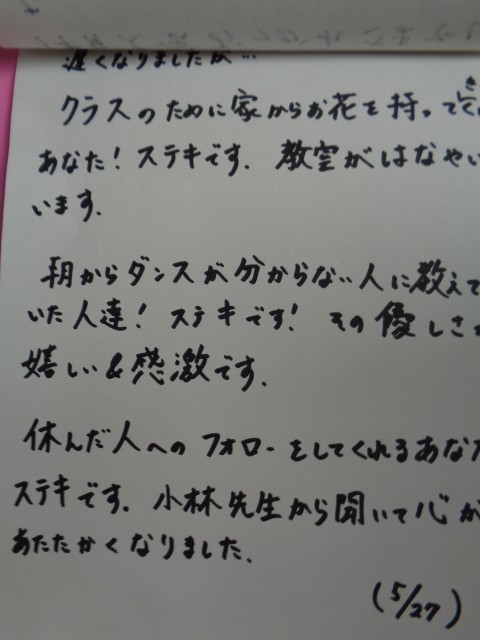 遅くなりましたが…
クラスのために家からお花を持ってき
あなた！ステキです．教室がはなやい
います．
朝からダンスが分からない人に教えて
いた人達！ステキです！その優しさが
嬉しい&感激です．
休んだ人へのフォローをしてくれるあなた
ステキです．小林先生から聞いて心が
あたたかくなりました．
(5/27)